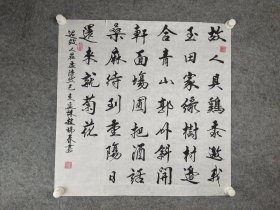 故人具鷄黍邀我
至田家綠樹村邊
合青山郭外斜開
軒面場圃把酒話
桑麻待到重陽日
還來就菊花
過故人莊孟浩然